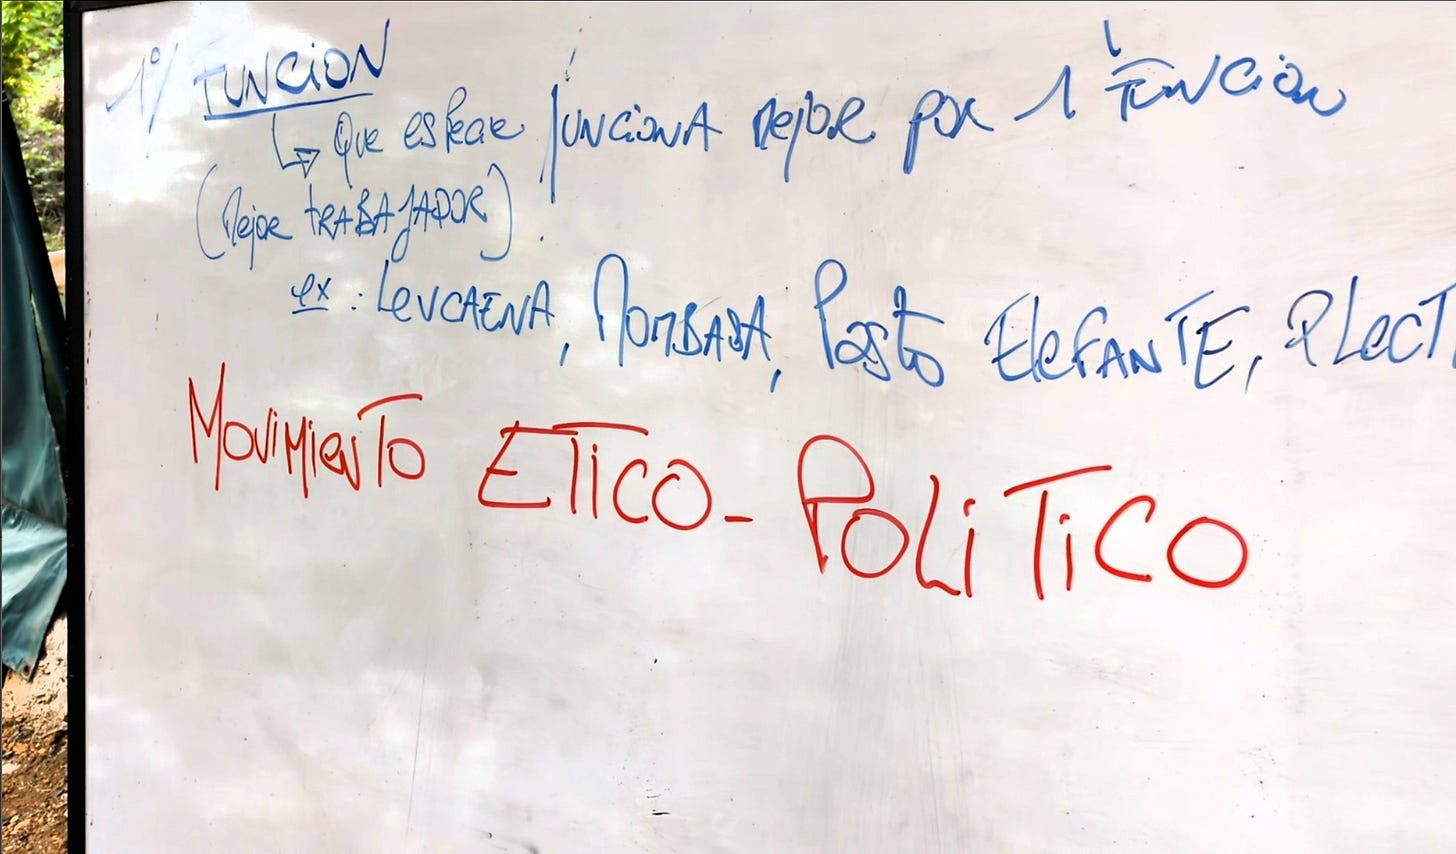 1°/ FUNCION
↳ Que espece funciona mejor por 1 Funcion
(Mejor TRABAJADOR)
ex : LeucAENA, MOMBASA, Pasto ElefANTE, PLecT
MoviMienTo ETico - PoLiTico